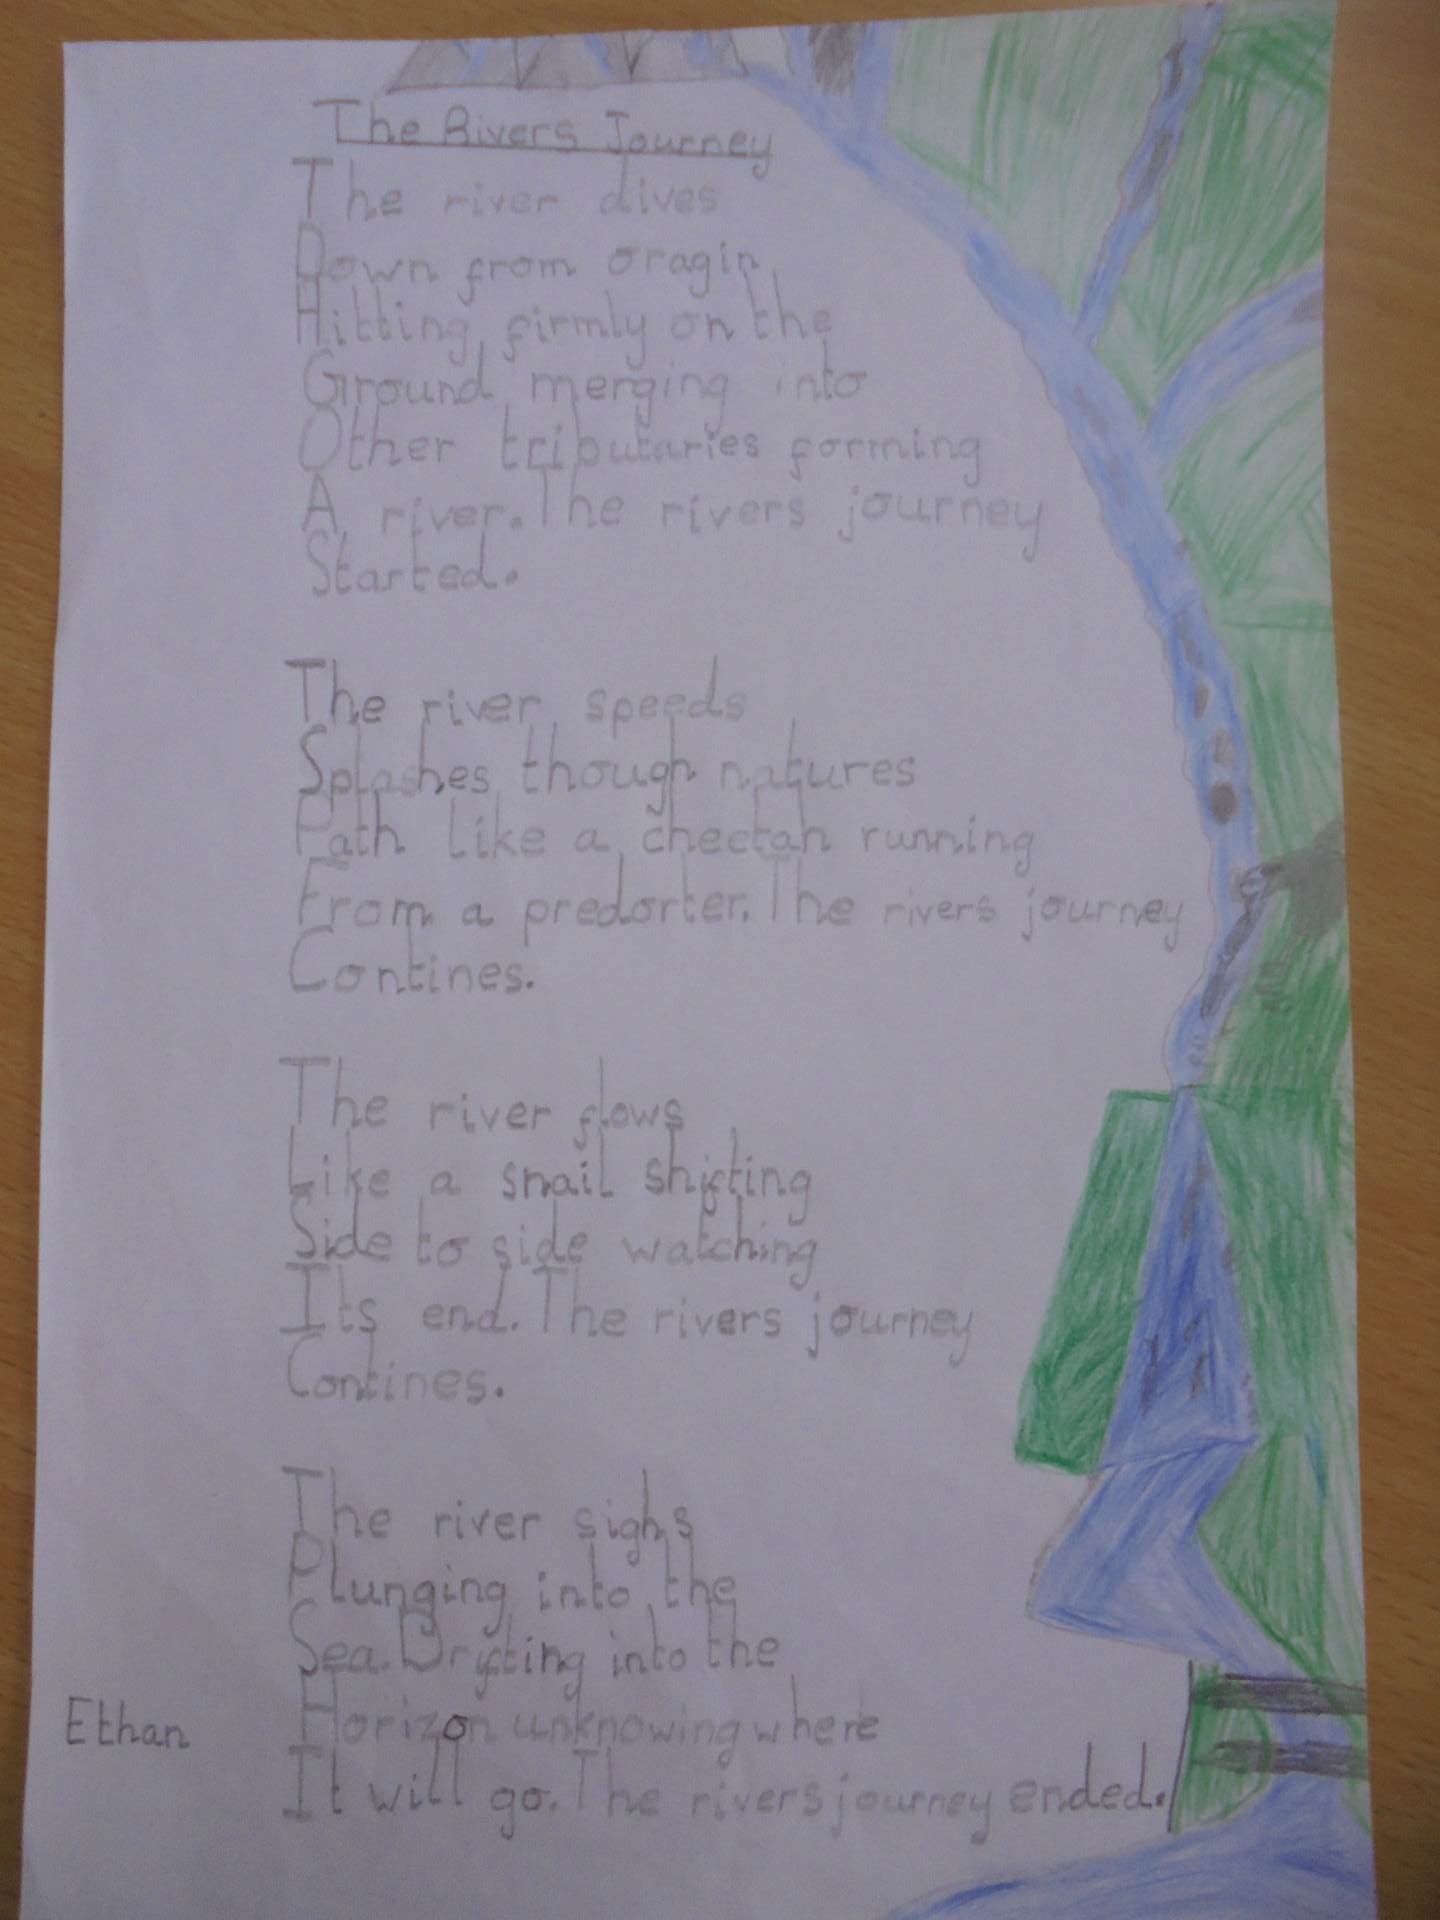 The Rivers Journey
The river dives
Down from oragin
Hitting firmly on the
Ground merging into
Other tributaries forming
A river. The rivers journey
Started.
The river speeds
Splashes though natures
Path like a cheetah running
From a predorter. The rivers journey
Contines.
The river flows
Like a snail shifting
Side to side watching
Its end. The rivers journey
Contines.
The river sighs
Plunging into the
Sea. Drifting into the
Horizon unknowing where
It will go. The rivers journey ended.
Ethan